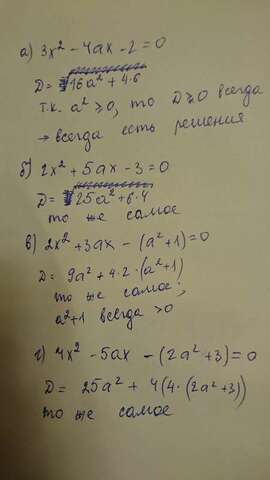 а) 3x² - 4ax - 2 = 0
D = 16a² + 4·6
т.к. a² ≥ 0, то D ≥ 0 всегда
→ всегда есть решения
б) 2x² + 5ax - 3 = 0
D = 25a² + 6·4
то же самое
в) 2x² + 3ax - (a² + 1) = 0
D = 9a² + 4·2·(a² + 1)
то же самое;
a² + 1 всегда > 0
г) 4x² - 5ax - (2a² + 3) = 0
D = 25a² + 4(4·(2a² + 3))
то же самое